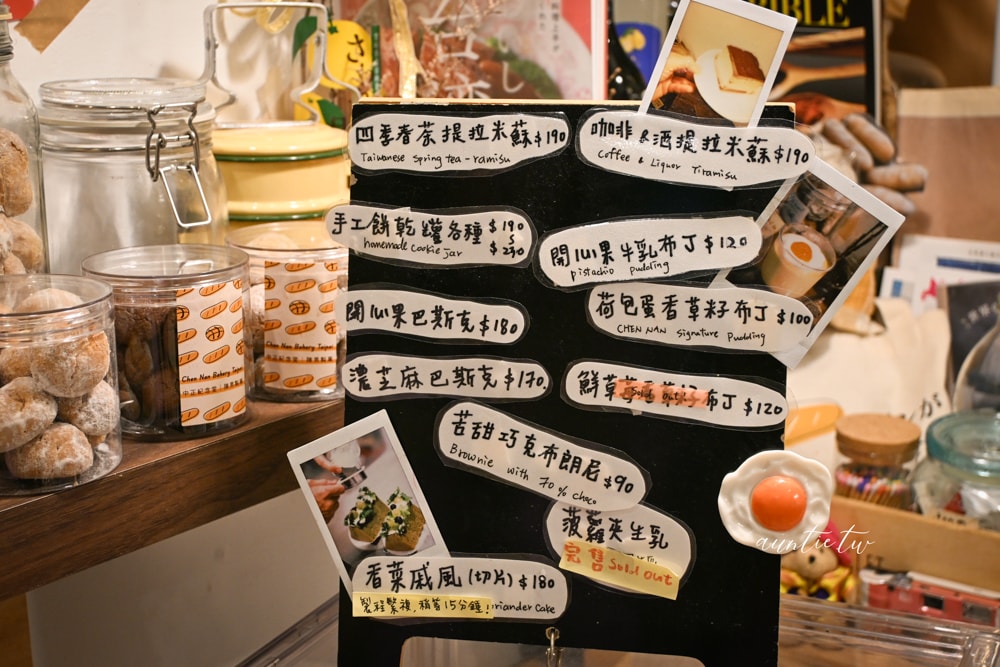 四季春茶提拉米蘇$190
Taiwanese Spring tea-ramisu
咖啡&酒提拉米蘇$190
Coffee & Liquor Tiramisu
手工餅乾罐各種 $190
homemade cookie jar $230
開心果牛乳布丁$120
pistachio pudding
開心果巴斯克$180
荷包蛋香草籽布丁$100
CHEN NAN signature pudding
濃芝麻巴斯克$170
布丁$120
Sold out
苦甜巧克布朗尼$90
Brownie with 70% choco
菠蘿夾生乳
完售Sold out
香菜戚風(切片)$180
製程繁複,稍等15分鐘!
riander Cake
Chen Nan Bakery Taipei
auntie.tw
BIBLE